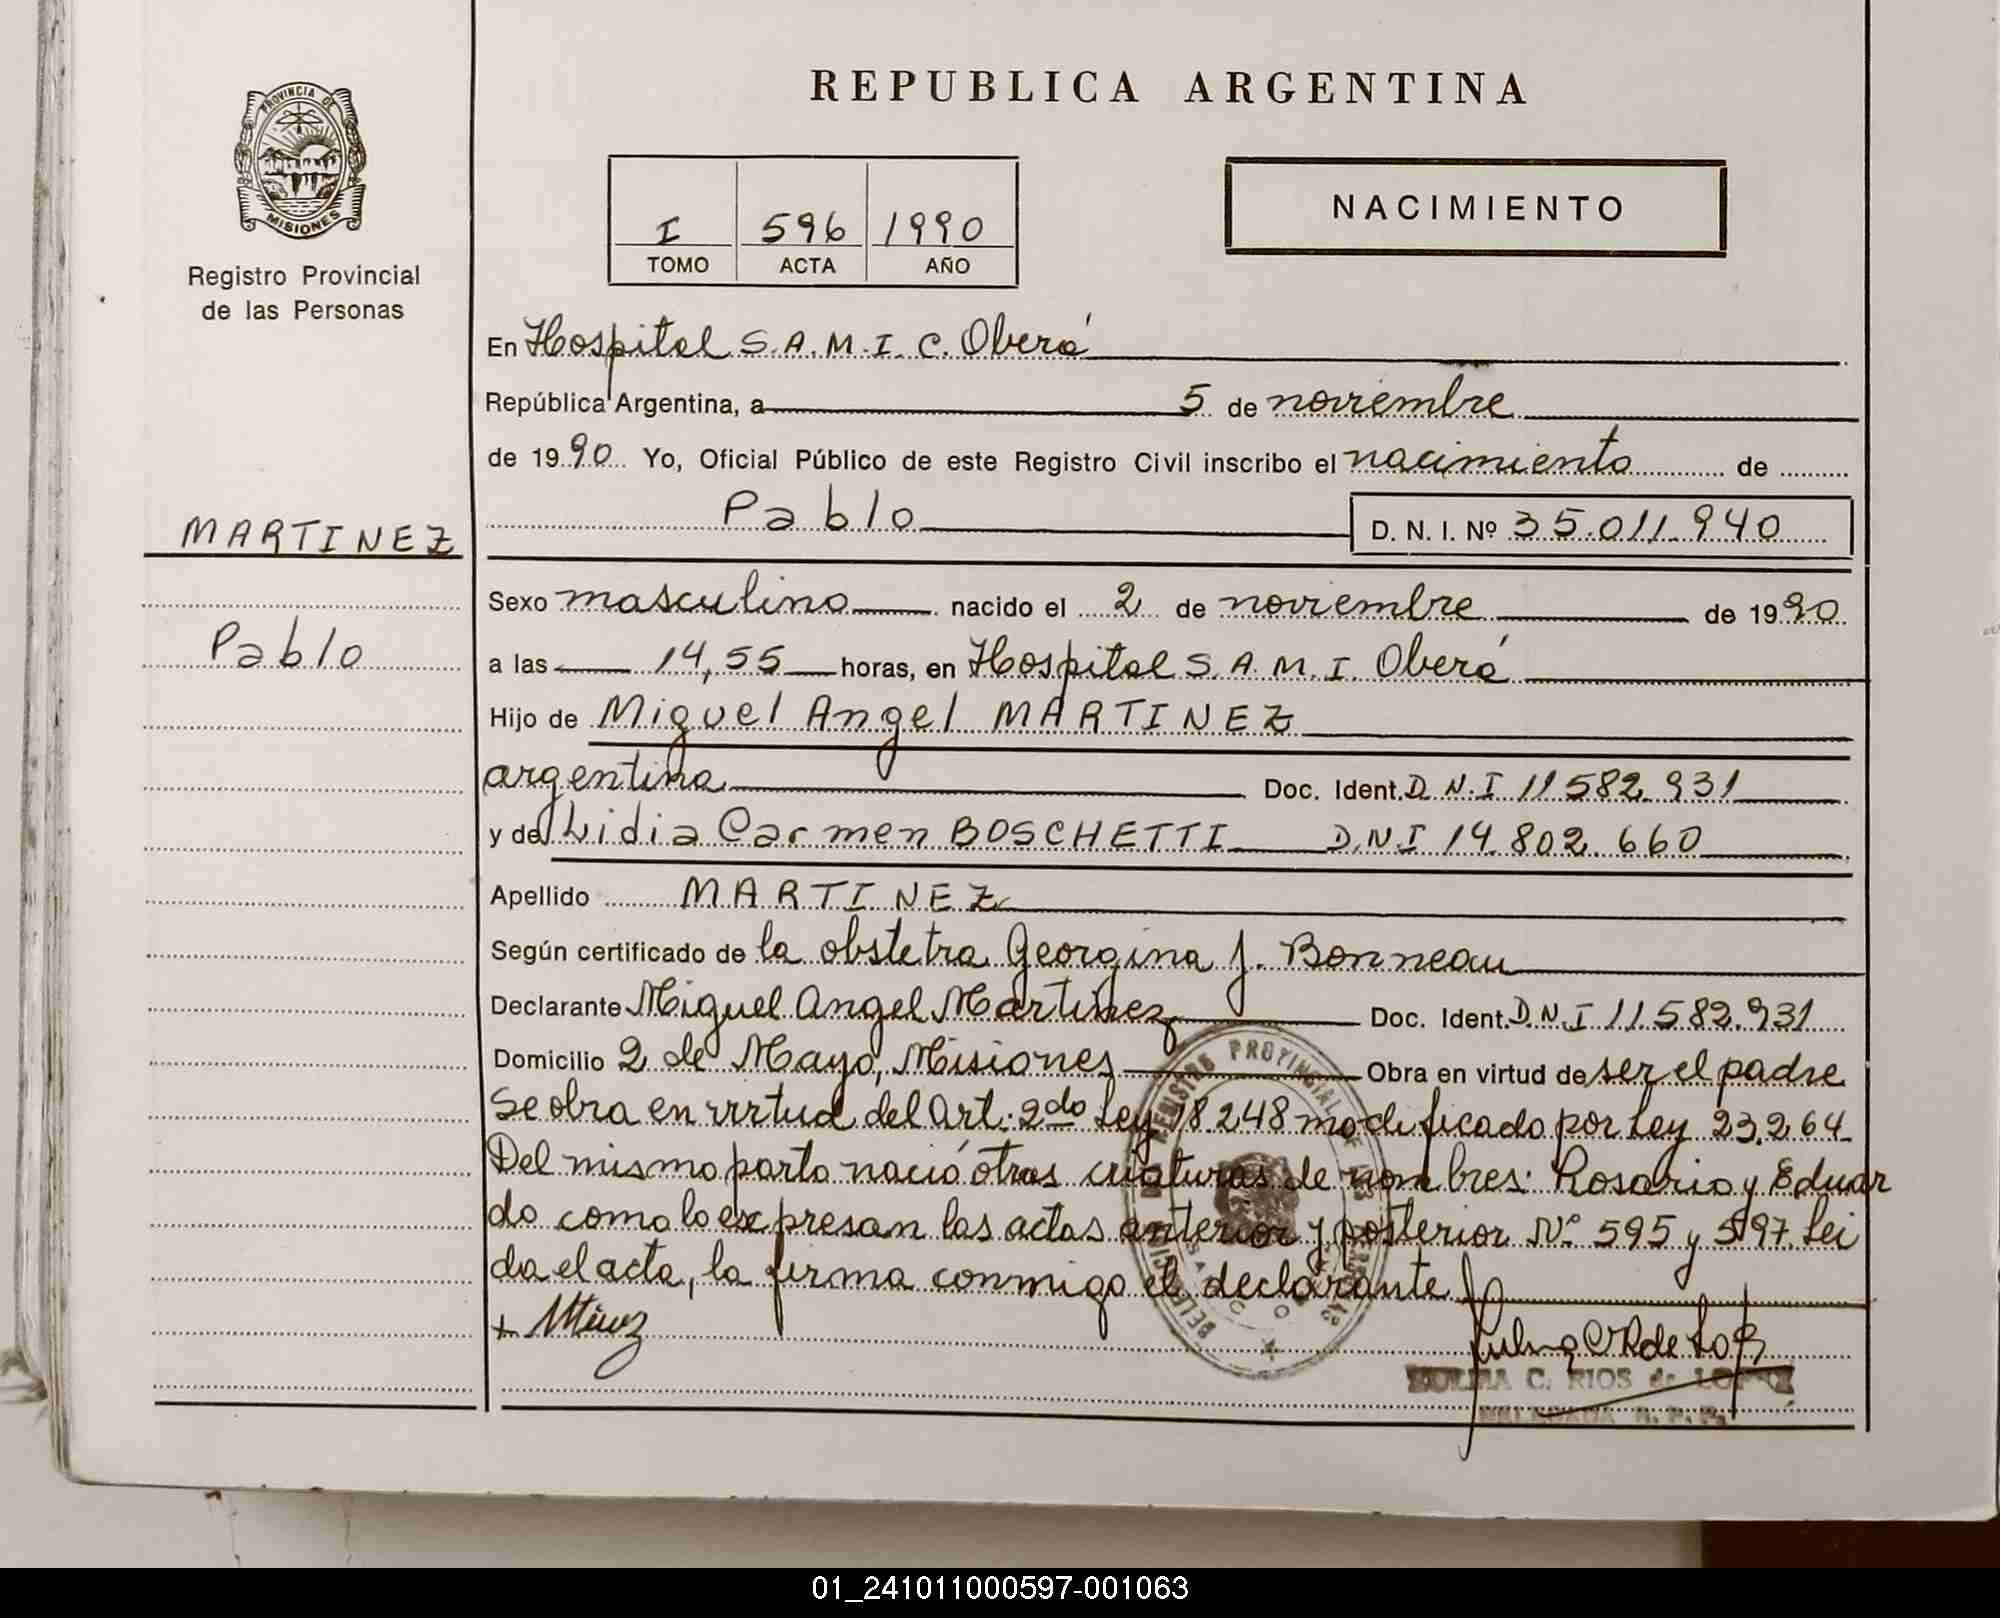 PROVINCIA DE
MISIONES
Registro Provincial
de las Personas
MARTINEZ
Pablo
REPUBLICA ARGENTINA
I 596 1990
TOMO ACTA AÑO
NACIMIENTO
En Hospital S.A.M.I.C. Oberá
República Argentina, a 5 de noviembre
de 1990 Yo, Oficial Público de este Registro Civil inscribo el nacimiento de
Pablo D. N. I. Nº 35.011.940
Sexo masculino nacido el 2 de noviembre de 1990
a las 14,55 horas, en Hospital S.A.M.I. Oberá
Hijo de Miguel Angel MARTINEZ
argentina Doc. Ident. D.N.I 11582.931
y de Lidia Carmen BOSCHETTI D.N.I 14.802.660
Apellido MARTINEZ
Según certificado de la obstetra Georgina J. Bonneau
Declarante Miguel Angel Martinez Doc. Ident. D.N.I 11.582.931
Domicilio 2 de Mayo, Misiones Obra en virtud de ser el padre
Se obra en virtud del Art. 2do Ley 18248 modificado por Ley 23.264
Del mismo parto nació otras criaturas de nombres: Rosario y Eduar
do como lo expresan las actas anterior y posterior Nº 595 y 597. Lei
da el acta, la firma conmigo el declarante
REGISTRO PROVINCIAL DE
C. RIOS de LOPEZ
DELEGADA R. P. P.
01_241011000597-001063